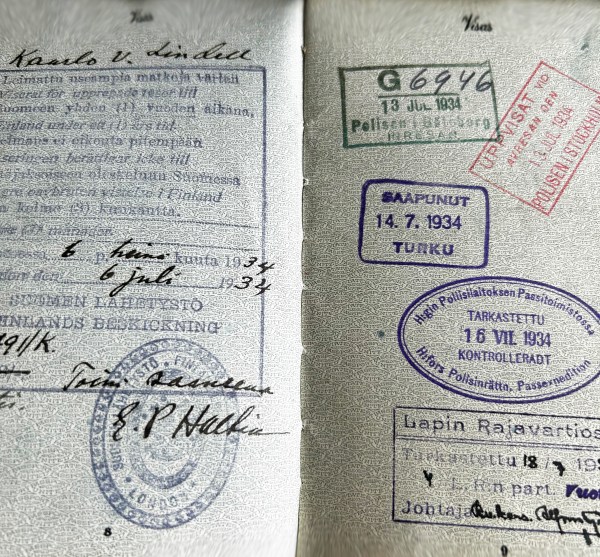 Visas
Kaarlo V. Lindell
Leimattu useampia matkoja varten
Viserat för upprepade resor till
Suomeen yhden (1) vuoden aikana,
Finland under ett (1) års tid
oikeuta pitempään
berättigar icke till
oleskeluun Suomessa
vistelse i Finland
kolme (3) kuukautta.
(3) månader.
6 p. heinä kuuta 1934
den 6 juli 1934
SUOMEN LÄHETYSTÖ
FINLANDS BESKICKNING
291/K.
Toim. saanena
E. P. Hallin
LONDON
8
Visas
G 6946
13 JUL 1934
Polisen i Göteborg
INRESAD
UPPVISAT VID
INRESAN DEN
13 JUL 1934
POLISEN I STOCKHOLM
SAAPUNUT
14. 7. 1934
TURKU
H:gin Poliisilaitoksen Passitoimistossa
TARKASTETTU
16 VII. 1934
KONTROLLERADT
H:fors Polisinrätt., Passexpedition
Lapin Rajavartios
Tarkastettu 18/7 193
4 L. R:n part.
Johtaja
9